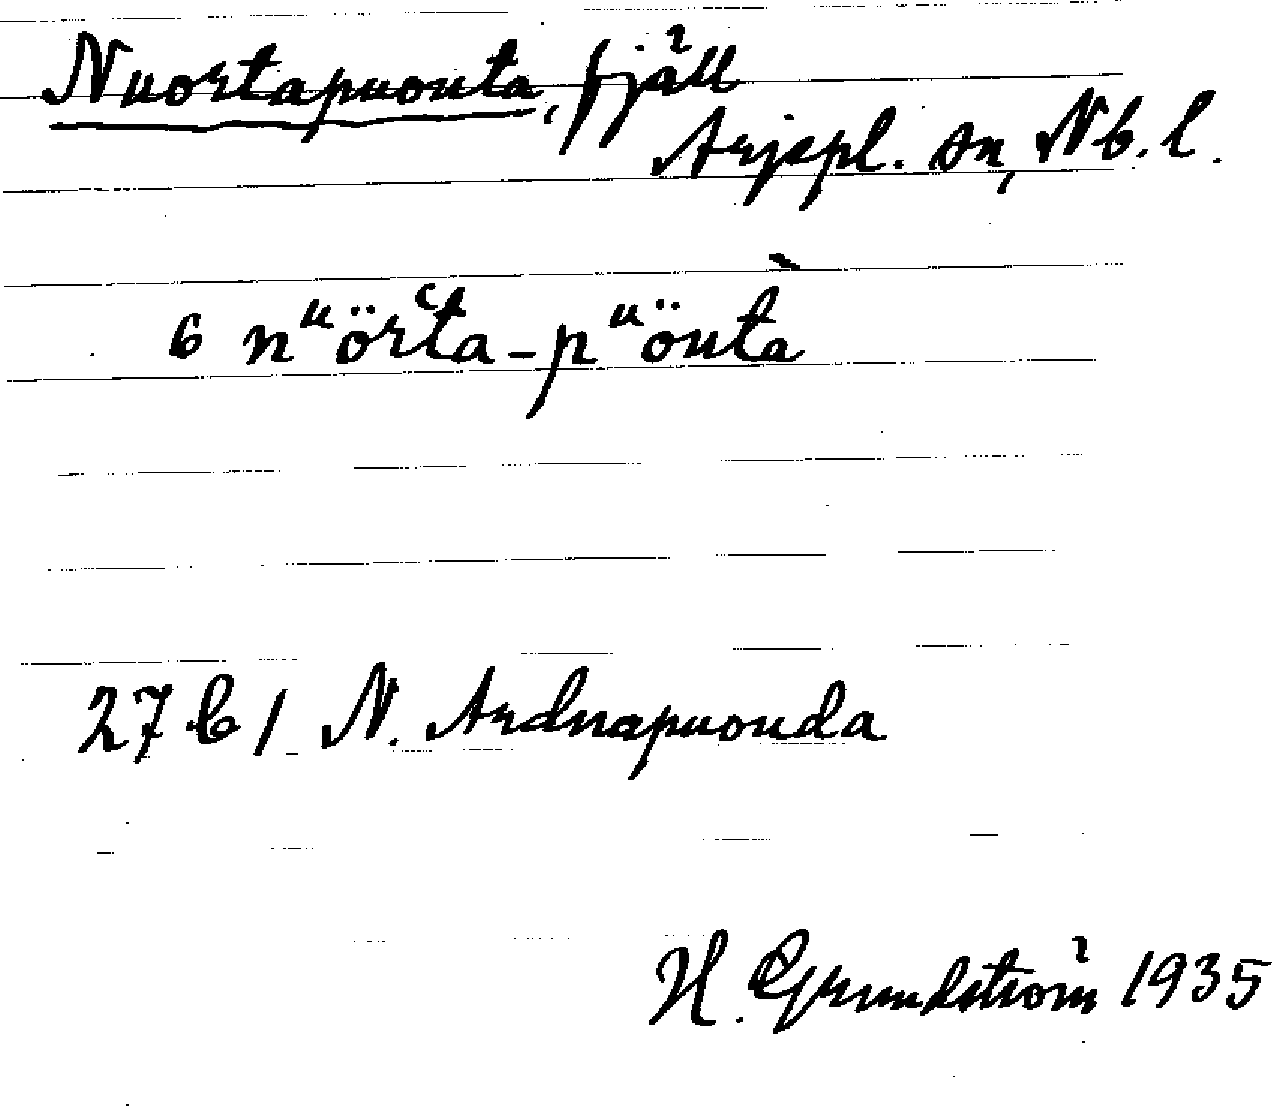 Nuortapuouta, fjäll
Arjepl. sn, Nb. l.
6 nᵘörʿta-pᵘöutà
27 b / N. Ardnapuouda
H. Grundström 1935